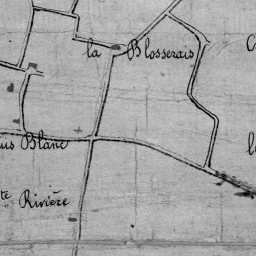 la Blosserais
us Blanc
te Rivière